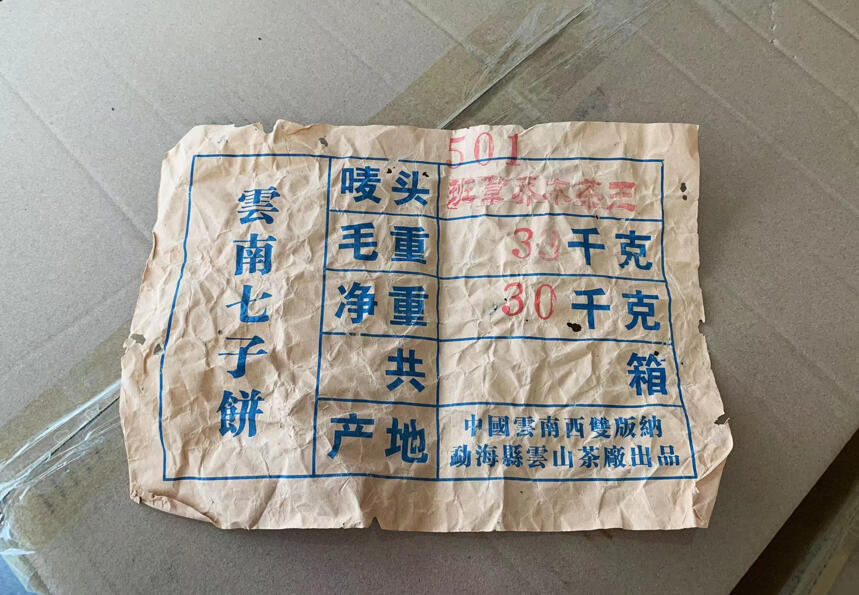 雲南七子餅
501
唛头 班章乔木茶王
毛重 3 千克
净重 30 千克
共 箱
产地 中國雲南西雙版納
勐海縣雲山茶廠出品